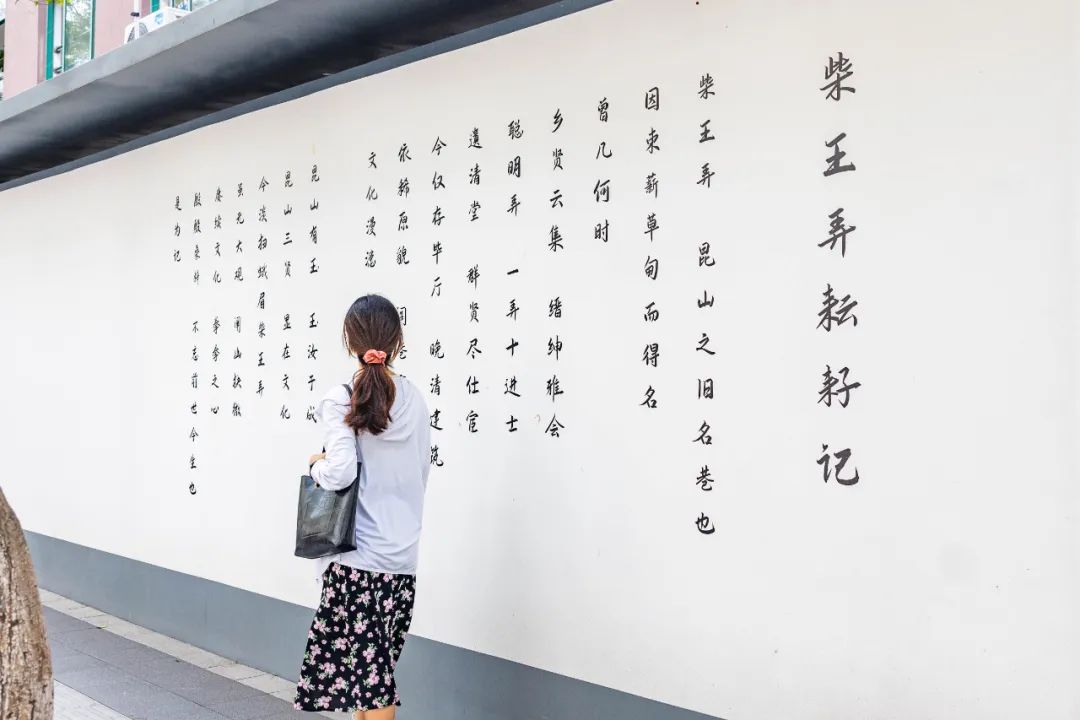 柴王弄耘耔记
柴王弄 昆山之旧名巷也
因束薪草甸而得名
曾几何时
乡贤云集 缙绅雅会
聪明弄 一弄十进士
遗清堂 群贤尽仕宦
今仅存毕厅 晚清建筑
依稀原貌
文化漫漶
昆山有玉 玉汝于成
昆山三贤 显在文化
今淡扫蛾眉柴王弄
虽无大观 山抉微
赓续文化 拳拳之心
殷殷桑梓 不忘前世今生也
是为记